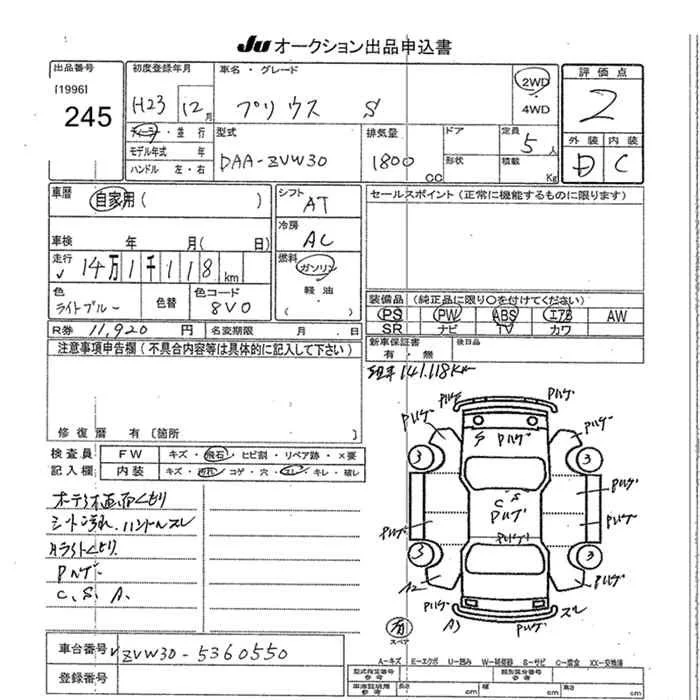 JU オークション出品申込書
出品番号
[1996]
245
初度登録年月
H23 12月
ディーラー・並行
モデル年式 年
ハンドル 左・右
車名・グレード
プリウス S
2WD
4WD
型式
DAA-ZVW30
排気量
1800 CC
ドア
形状
定員 5人
積載 Kg
評価点
2
外装 内装
D C
車歴
自家用( )
車検 年 月( 日)
走行
14万1千118km
色
ライトブルー
色替
色コード
8V0
シフト
AT
冷房
AC
燃料
ガソリン
軽油
( )
R券 11,920 円 名変期限 月 . 日
セールスポイント (正常に機能するものに限ります)
装備品 (純正品に限り○を付けてください)
PS PW ABS エアB AW
SR ナビ TV カワ
新車保証書
有・無
後日品
注意事項申告欄(不具合内容等は具体的に記入して下さい)
修復歴 有(箇所 )
141.118Km
検査員
記入欄
FW キズ・飛石・ヒビ割・リペア跡・×要
内装 キズ・汚れ・コゲ・穴・スレ・キレ・破レ
シート汚れ.ハンドルスレ
Pハゲ
C、S、A、
車台番号 ZVW30-5360550
登録番号
Pハゲ
Pハゲ
Pハゲ
S Pハゲ
3
3
Pハゲ
C S
Pハゲ
Pハゲ
Pハゲ
Pハゲ
3
3
A2
Pハゲ
Pハゲ
Pハゲ
スレ
A3
Pハゲ
有
スペア
A-キズ E-エクボ U-凹み W-補修跡 S-サビ C-腐食 XX-交換済
型式指定番号
参考
類別区分番号
参考
車庫証明用
参考
長さ cm
幅 cm
高さ cm